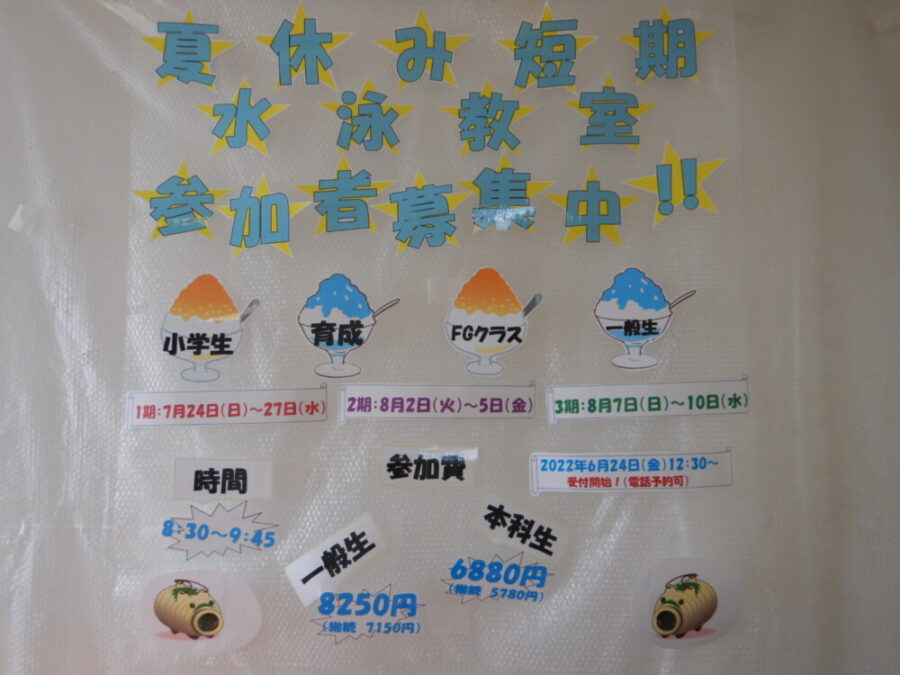 夏休み短期
水泳教室
参加者募集中!!
小学生
育成
FGクラス
一般生
1期:7月24日(日)~27日(水)
2期:8月2日(火)~5日(金)
3期:8月7日(日)~10日(水)
時間
8:30~9:45
参加費
2022年6月24日(金)12:30~
受付開始!(電話予約可)
一般生
8250円
(継続 7150円)
本科生
6880円
(継続 5780円)